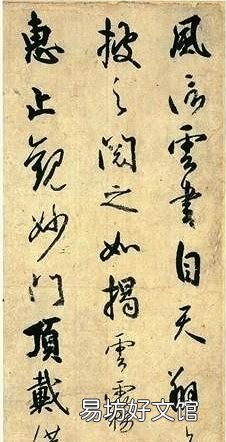 風信雲書自天翔
披之閱之如揭雲霧
惠止觀妙門頂戴
易坊好文馆